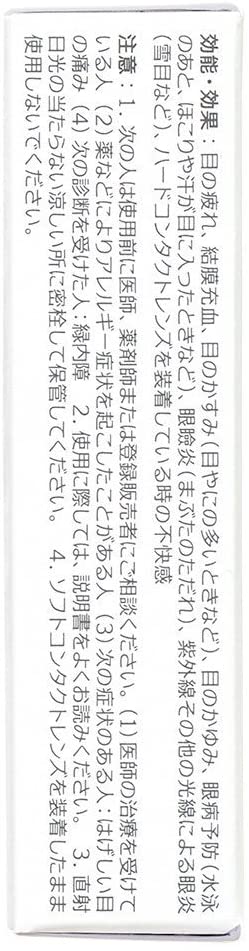 効能・効果：目の疲れ、結膜充血、目のかすみ（目やにの多いときなど）、目のかゆみ、眼病予防（水泳
のあと、ほこりや汗が目に入ったときなど）、眼瞼炎（まぶたのただれ）、紫外線その他の光線による眼炎
（雪目など）、ハードコンタクトレンズを装着している時の不快感
注意：1. 次の人は使用前に医師、薬剤師または登録販売者にご相談ください。（1）医師の治療を受けて
いる人（2）薬などによりアレルギー症状を起こしたことがある人（3）次の症状のある人：はげしい目
の痛み（4）次の診断を受けた人：緑内障　2. 使用に際しては、説明書をよくお読みください。　3. 直射
日光の当たらない涼しい所に密栓して保管してください。　4. ソフトコンタクトレンズを装着したまま
使用しないでください。